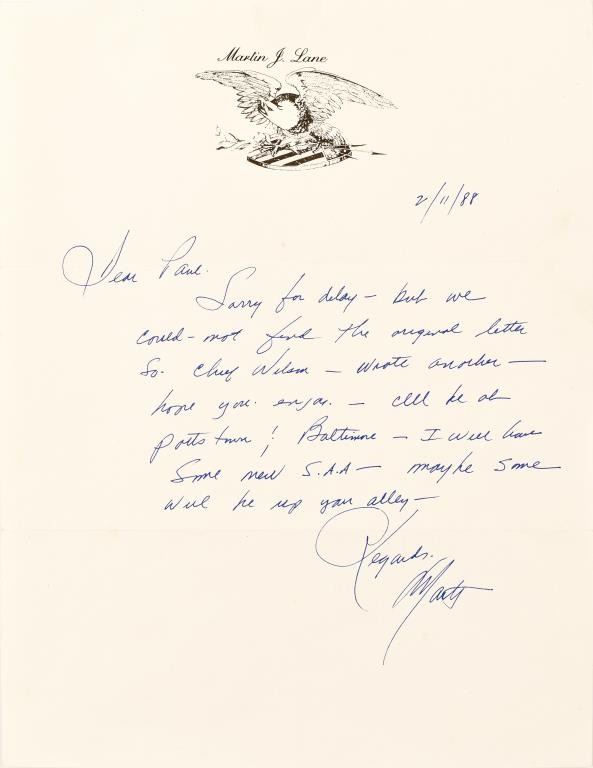 Martin J. Lane
2/11/88
Dear Paul.
Sorry for delay - but we
could - not find the original letter
So. Chief Wilson - wrote another -
hope you. enjoy. - I'll be at
Pottstown & Baltimore - I will have
Some new S.A.A - maybe some
will be up your alley -
Regards.
Marty